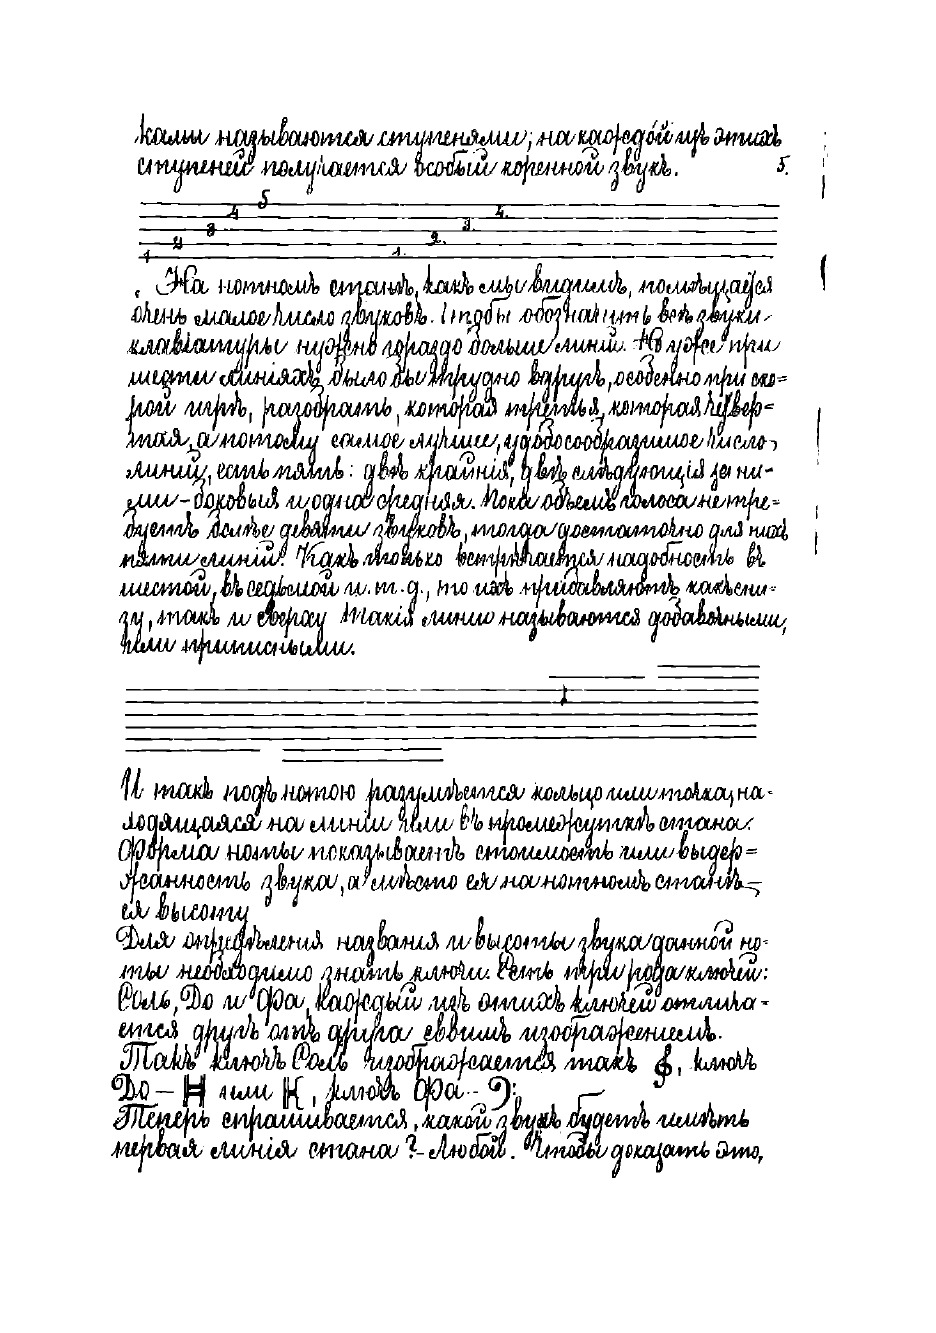 ками называются ступенями; на каждой изъ этихъ
ступеней получается особый коренной звукъ. 5.
5
4 4.
3 3.
2 2.
1 1.
На нотномъ станѣ, какъ мы видимъ, помѣщается
очень малое число звуковъ. Чтобы обозначить всѣ звуки
клавіатуры нужно гораздо больше линій. Но уже при
шести линіяхъ было бы трудно вдругъ, особенно при ско=
рой игрѣ, разобрать, которая третья, которая четвер=
тая, а потому самое лучшее, удобосообразимое число
линій, есть пять: двѣ крайнія, двѣ слѣдующія за ни-
ми - боковыя и одна средняя. Пока объемъ голоса не тре=
буетъ болѣе девяти звуковъ, тогда достаточно для нихъ
пяти линій. Какъ только встрѣчается надобность въ
шестой, въ седьмой и.т.д., то ихъ придавляютъ какъ сни-
зу, такъ и сверху Такія линіи называются добавочными,
или приписными.
И такъ подъ нотою разумѣется кольцо или точка, на-
ходящаяся на линіи или въ промежуткѣ стана.
Форма ноты показываетъ стоимость или выдер=
жанность звука, а мѣсто ея на нотномъ станѣ -
ея высоту
Для опредѣленія названія и высоты звука данной но-
ты необходимо знать ключи. Есть три рода ключей:
Соль, До и Фа, Каждый изъ этихъ ключей отлича-
ется другъ отъ друга своимъ изображеніемъ.
Такъ ключъ Соль изображается такъ 𝄞, ключъ
До — или , ключъ Фа - 𝄢
Теперь спрашивается, какой звукъ будетъ имѣть
первая линія стана ? - Любой. Чтобы доказать это,